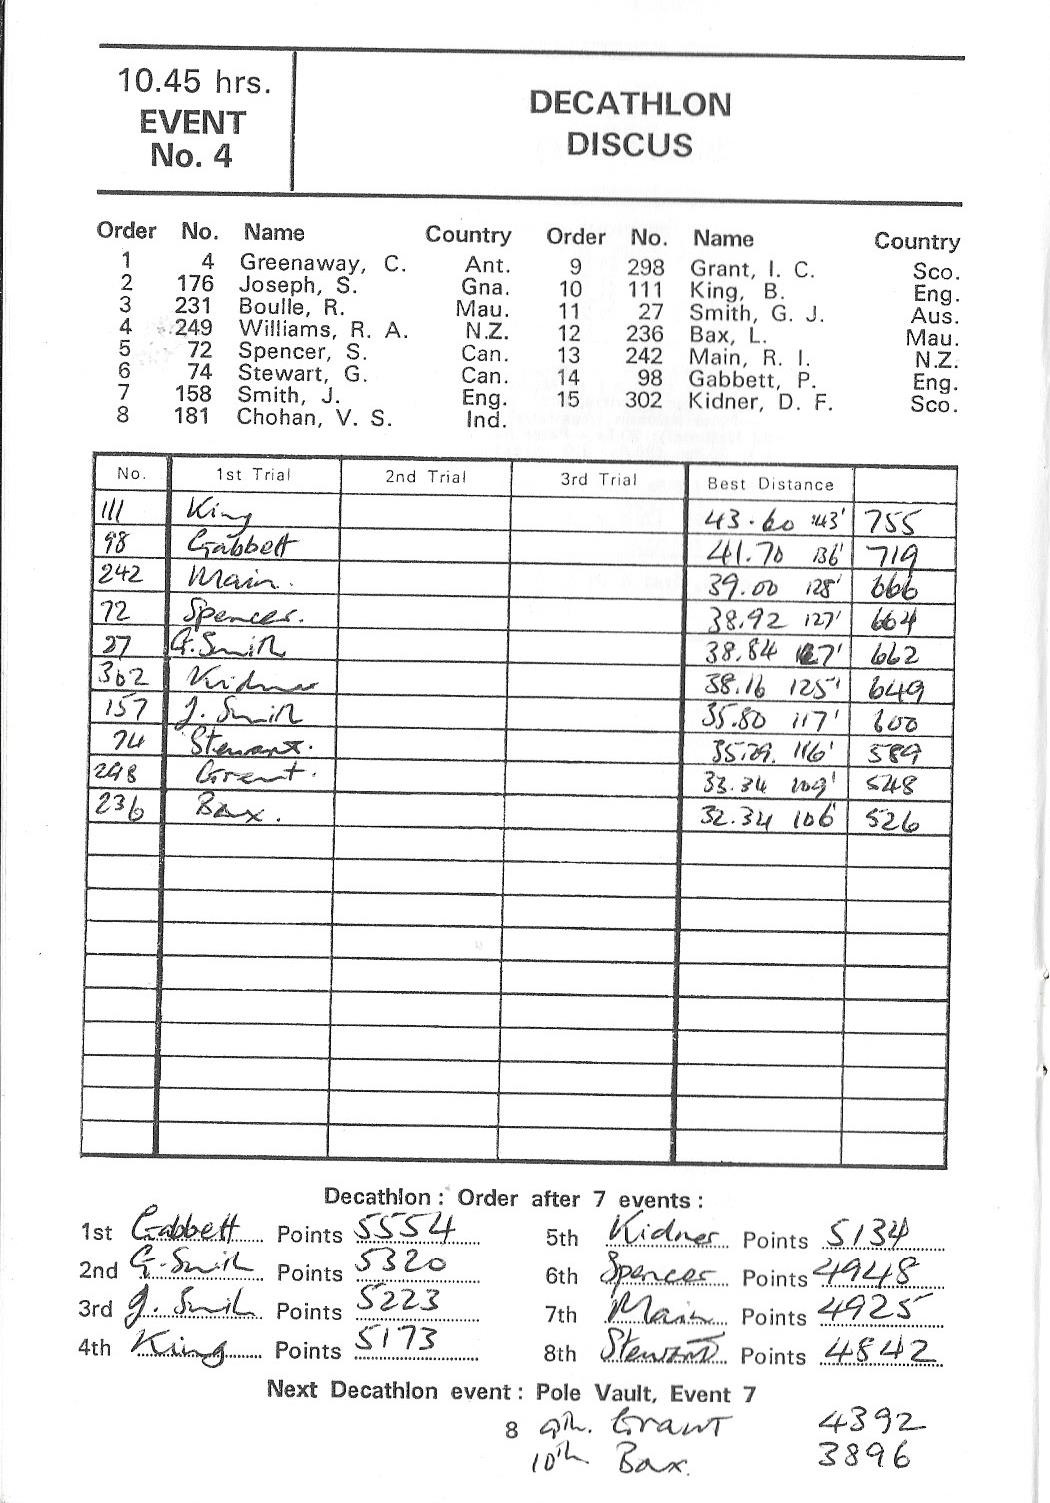 10.45 hrs.
EVENT
No. 4
DECATHLON
DISCUS
Order No. Name Country Order No. Name Country
1 4 Greenaway, C. Ant. 9 298 Grant, I. C. Sco.
2 176 Joseph, S. Gna. 10 111 King, B. Eng.
3 231 Boulle, R. Mau. 11 27 Smith, G. J. Aus.
4 249 Williams, R. A. N.Z. 12 236 Bax, L. Mau.
5 72 Spencer, S. Can. 13 242 Main, R. I. N.Z.
6 74 Stewart, G. Can. 14 98 Gabbett, P. Eng.
7 158 Smith, J. Eng. 15 302 Kidner, D. F. Sco.
8 181 Chohan, V. S. Ind.
No. 1st Trial 2nd Trial 3rd Trial Best Distance
111 King 43.60 143' 755
98 Gabbett 41.70 136' 719
242 Main. 39.00 128' 666
72 Spencer. 38.92 127' 664
27 G. Smith 38.84 127' 662
302 Kidner 38.16 125' 649
157 J. Smith 35.80 117' 600
74 Stewart. 35.29. 116' 589
298 Grant. 33.34 109' 548
236 Bax. 32.34 106' 526
Decathlon : Order after 7 events :
1st Gabbett Points 5554 5th Kidner Points 5134
2nd G. Smith Points 5320 6th Spencer Points 4948
3rd J. Smith Points 5223 7th Main Points 4925
4th King Points 5173 8th Stewart Points 4842
Next Decathlon event : Pole Vault, Event 7
8 9th. Grant 4392
10th Bax. 3896